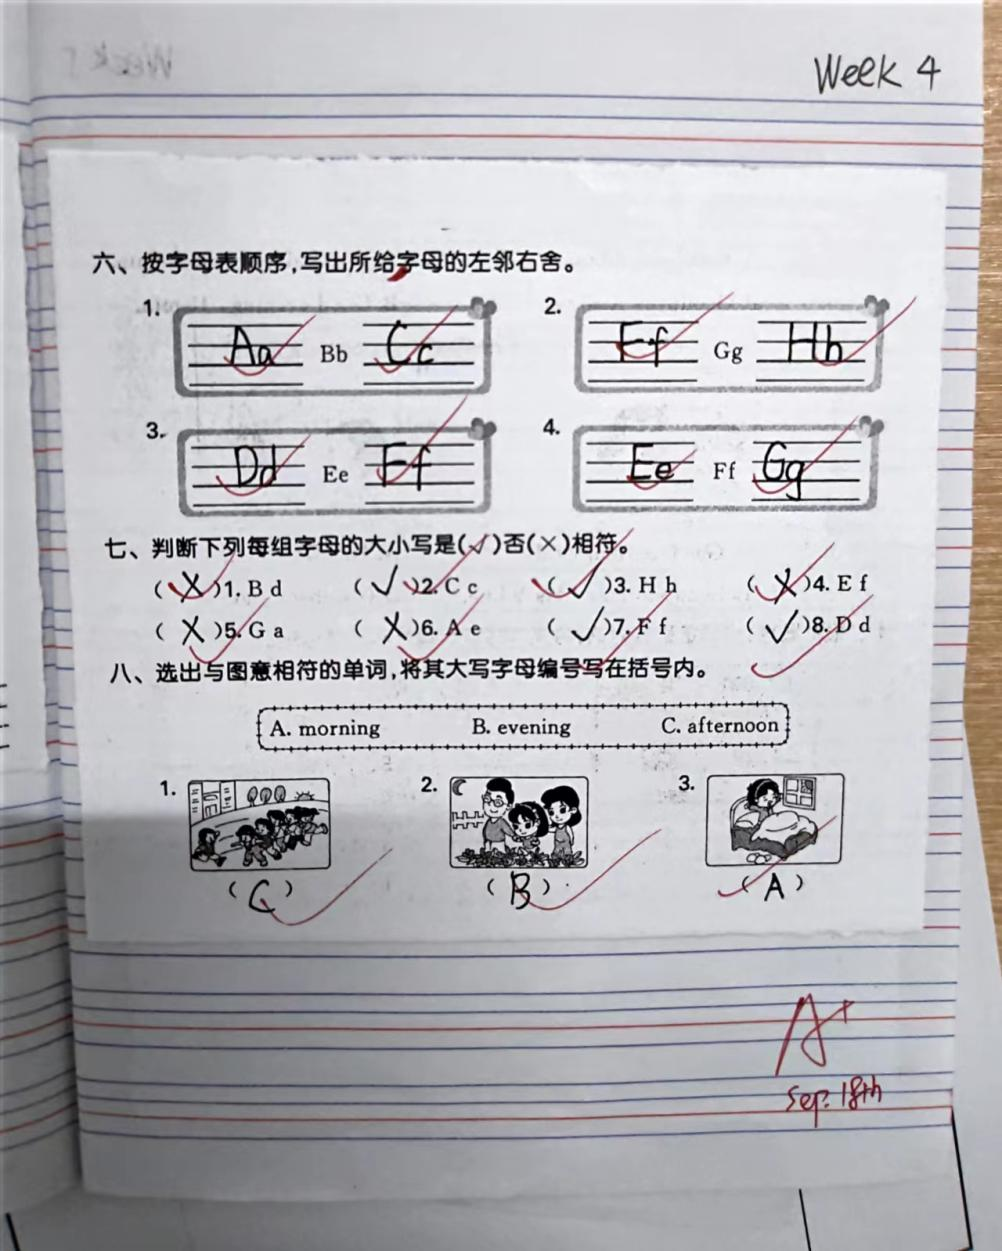 Week 4
六、按字母表顺序,写出所给字母的左邻右舍。
1. Aa Bb Cc 2. Ff Gg Hh
3. Dd Ee Ff 4. Ee Ff Gg
七、判断下列每组字母的大小写是(√)否(×)相符。
(X)1. B d (√)2. C c (√)3. H h (X)4. E f
(X)5. G a (X)6. A e (√)7. F f (√)8. D d
八、选出与图意相符的单词,将其大写字母编号写在括号内。
A. morning B. evening C. afternoon
1. 2. 3.
(C) (B) (A)
A+
Sep. 18th